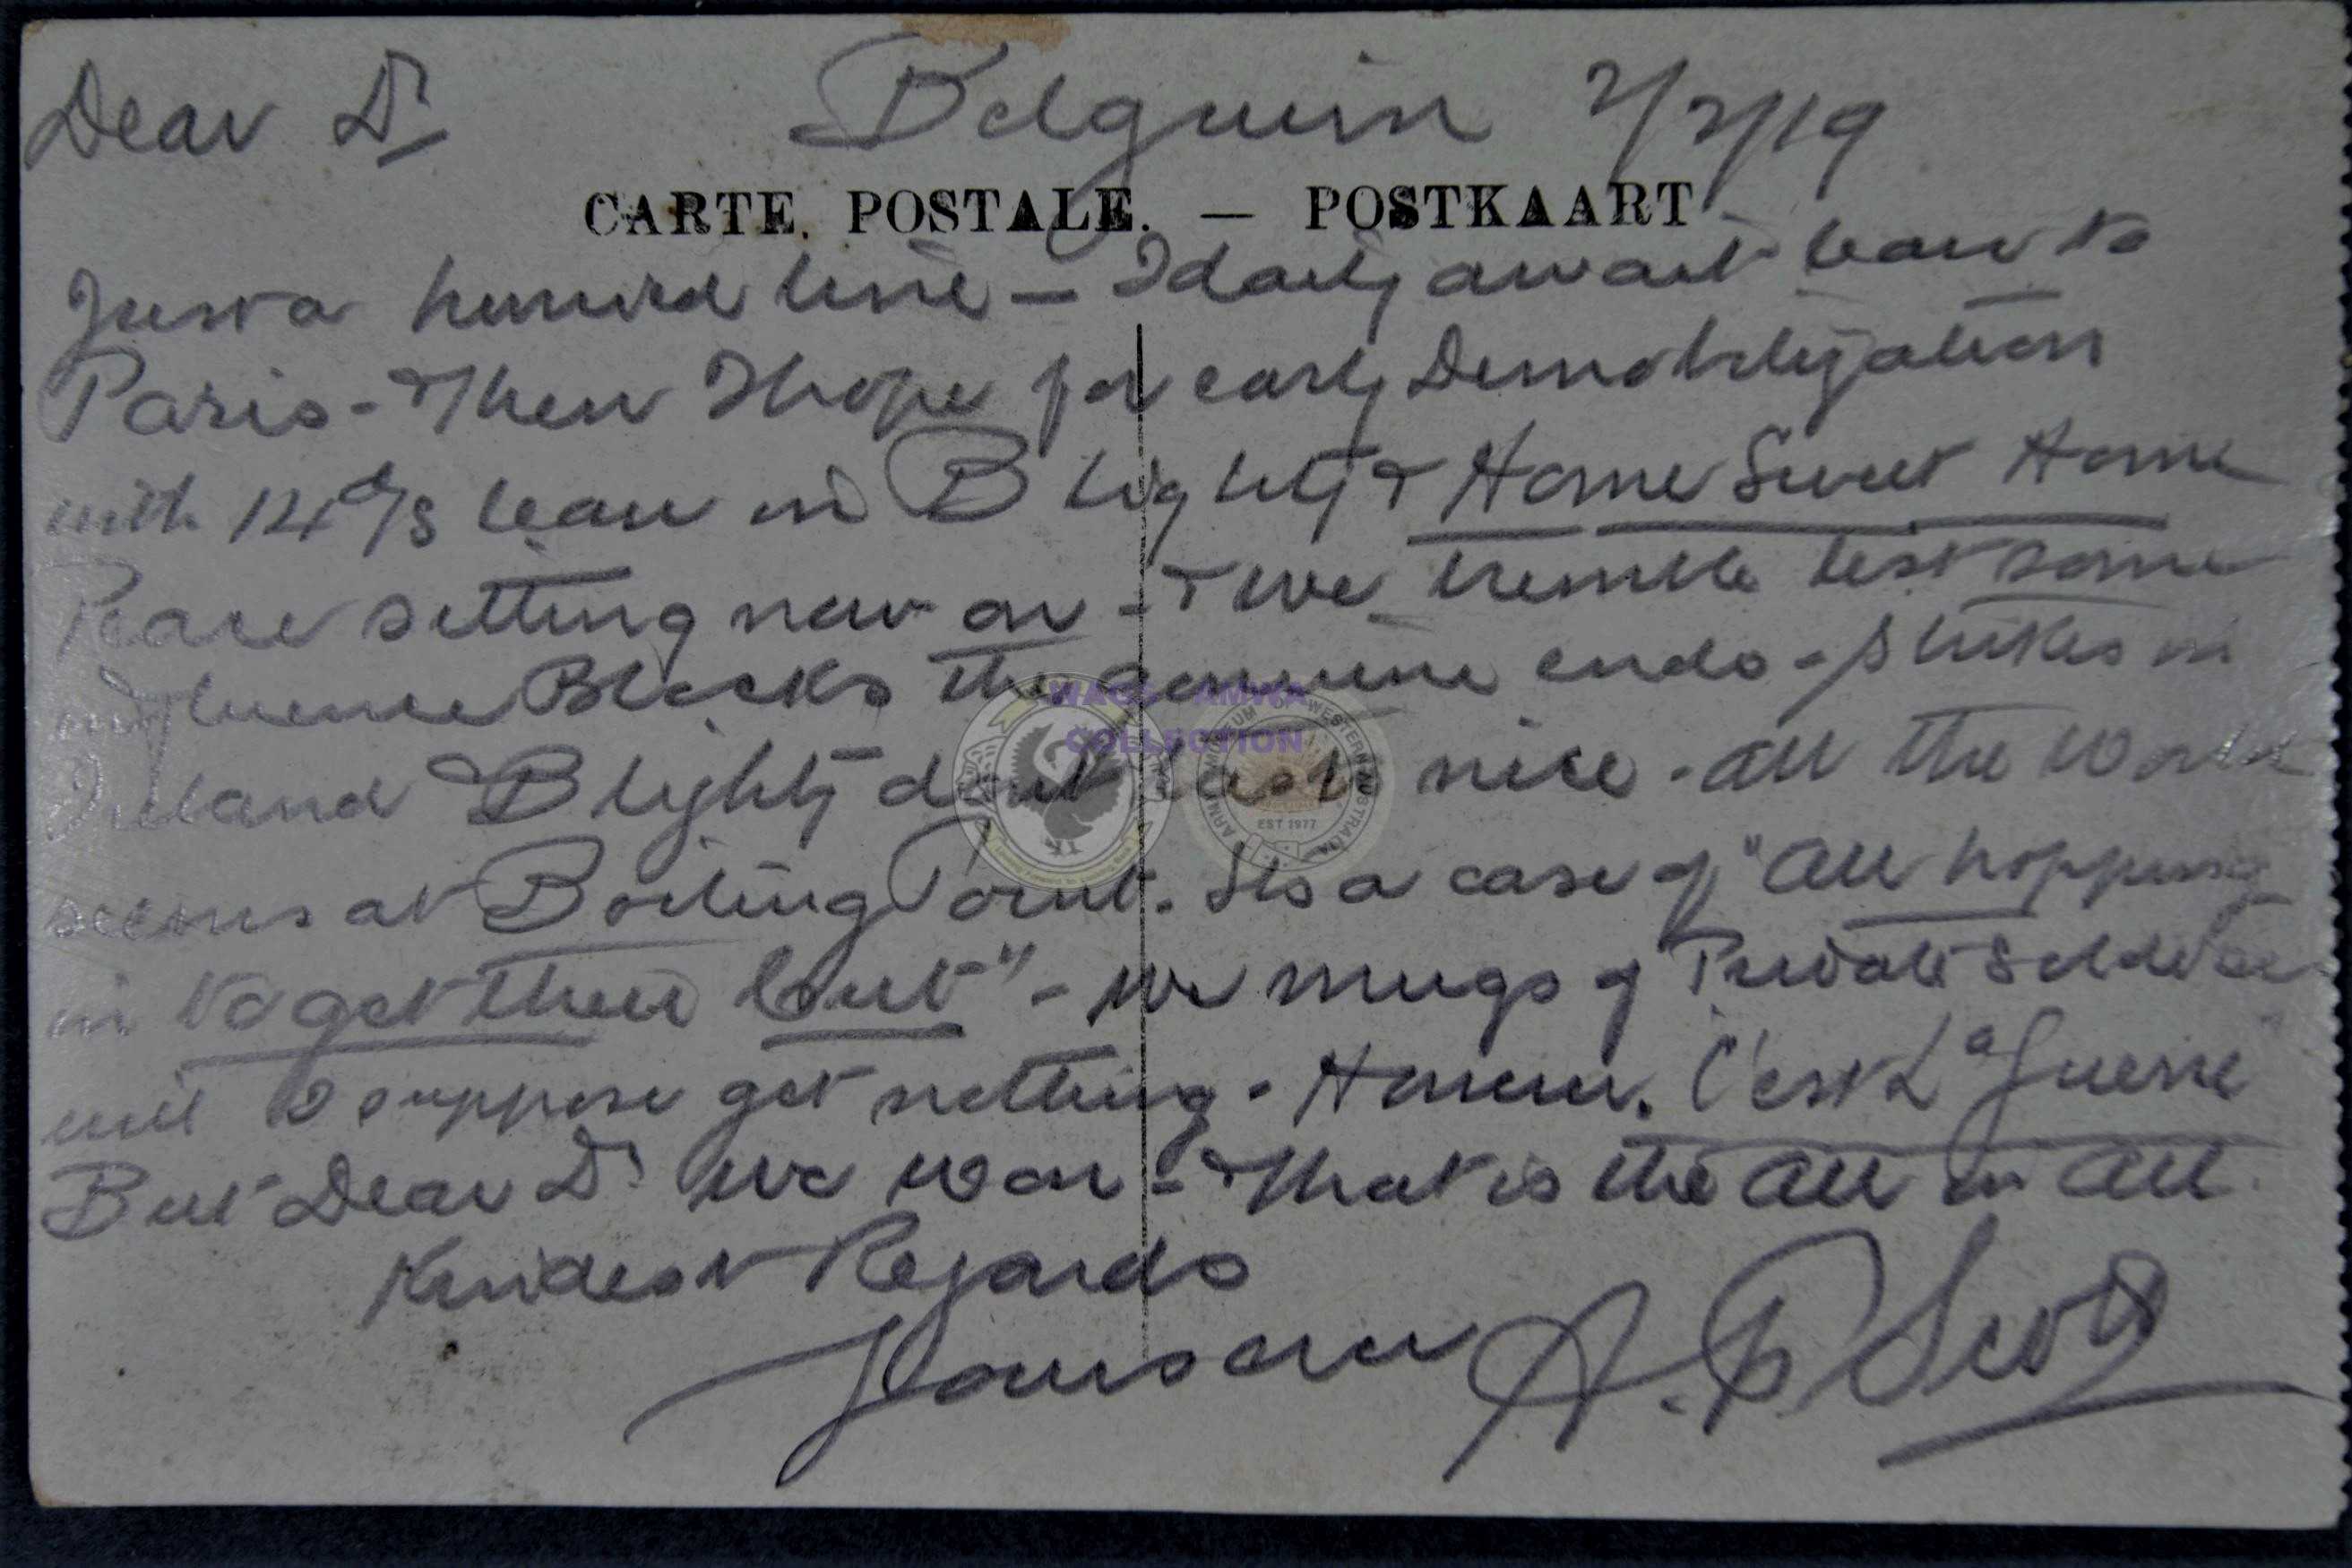 Dear Dr Belguim 2/2/19
CARTE POSTALE. — POSTKAART
Just a hurried line — I daily await leave to
Paris - & then I hope for early Demobilization
with 14 d/s leave in Blighty & Home Sweet Home
Peace setting now on - & we tremble lest some
influence Blocks the genuine ends - Strikes in
Ireland & Blighty dont taste nice - all the World
seems at Boiling Point. Its a case of "all hopping
in to get their bit" - we mugs of Private Soldiers
will I suppose get nothing - However. C'est La Guerre
But Dear Dr we won - & that is the all in all.
Kindest Regards
Yours ever A. P. Scott
WAGS - AMWA
COLLECTION
ARMY MUSEUM OF WESTERN AUSTRALIA
EST 1977